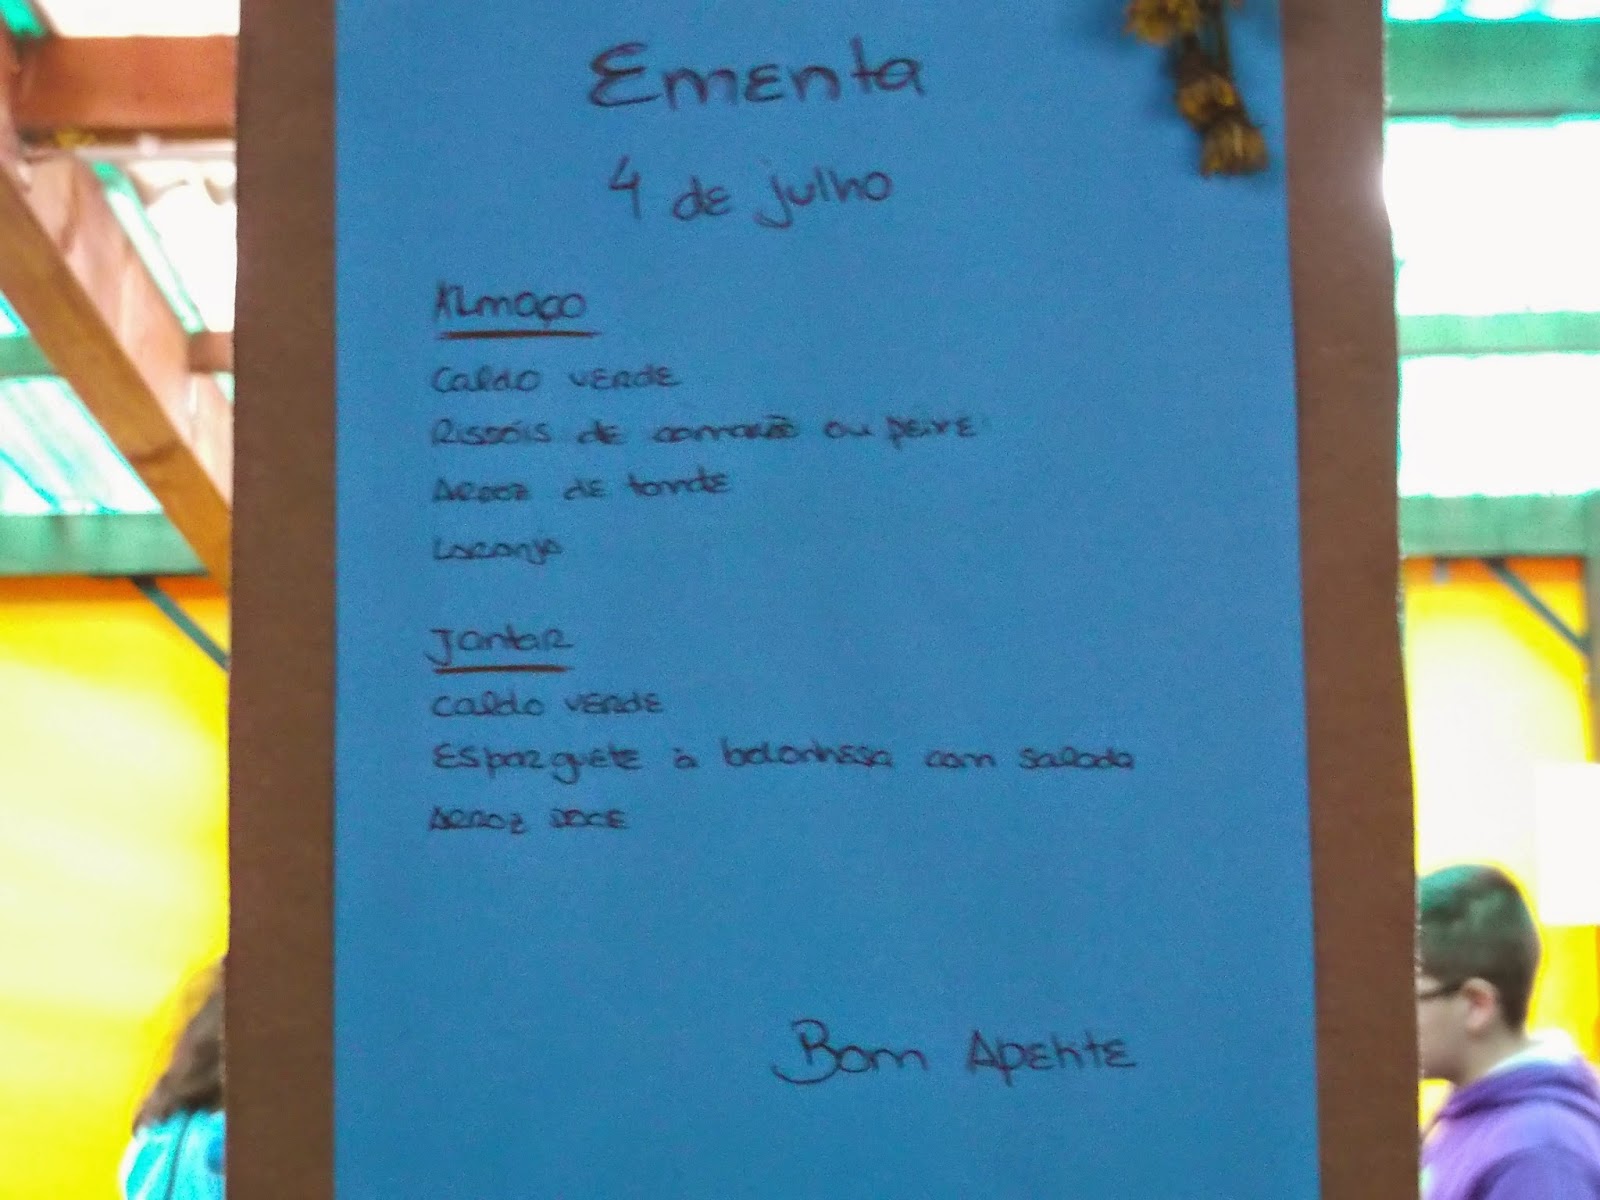 Ementa
4 de julho
Almoço
Caldo verde
Rissóis de camarão ou peixe
Arroz de tomate
Laranja
Jantar
Caldo verde
Esparguete à bolonhesa com salada
Arroz doce
Bom Apetite